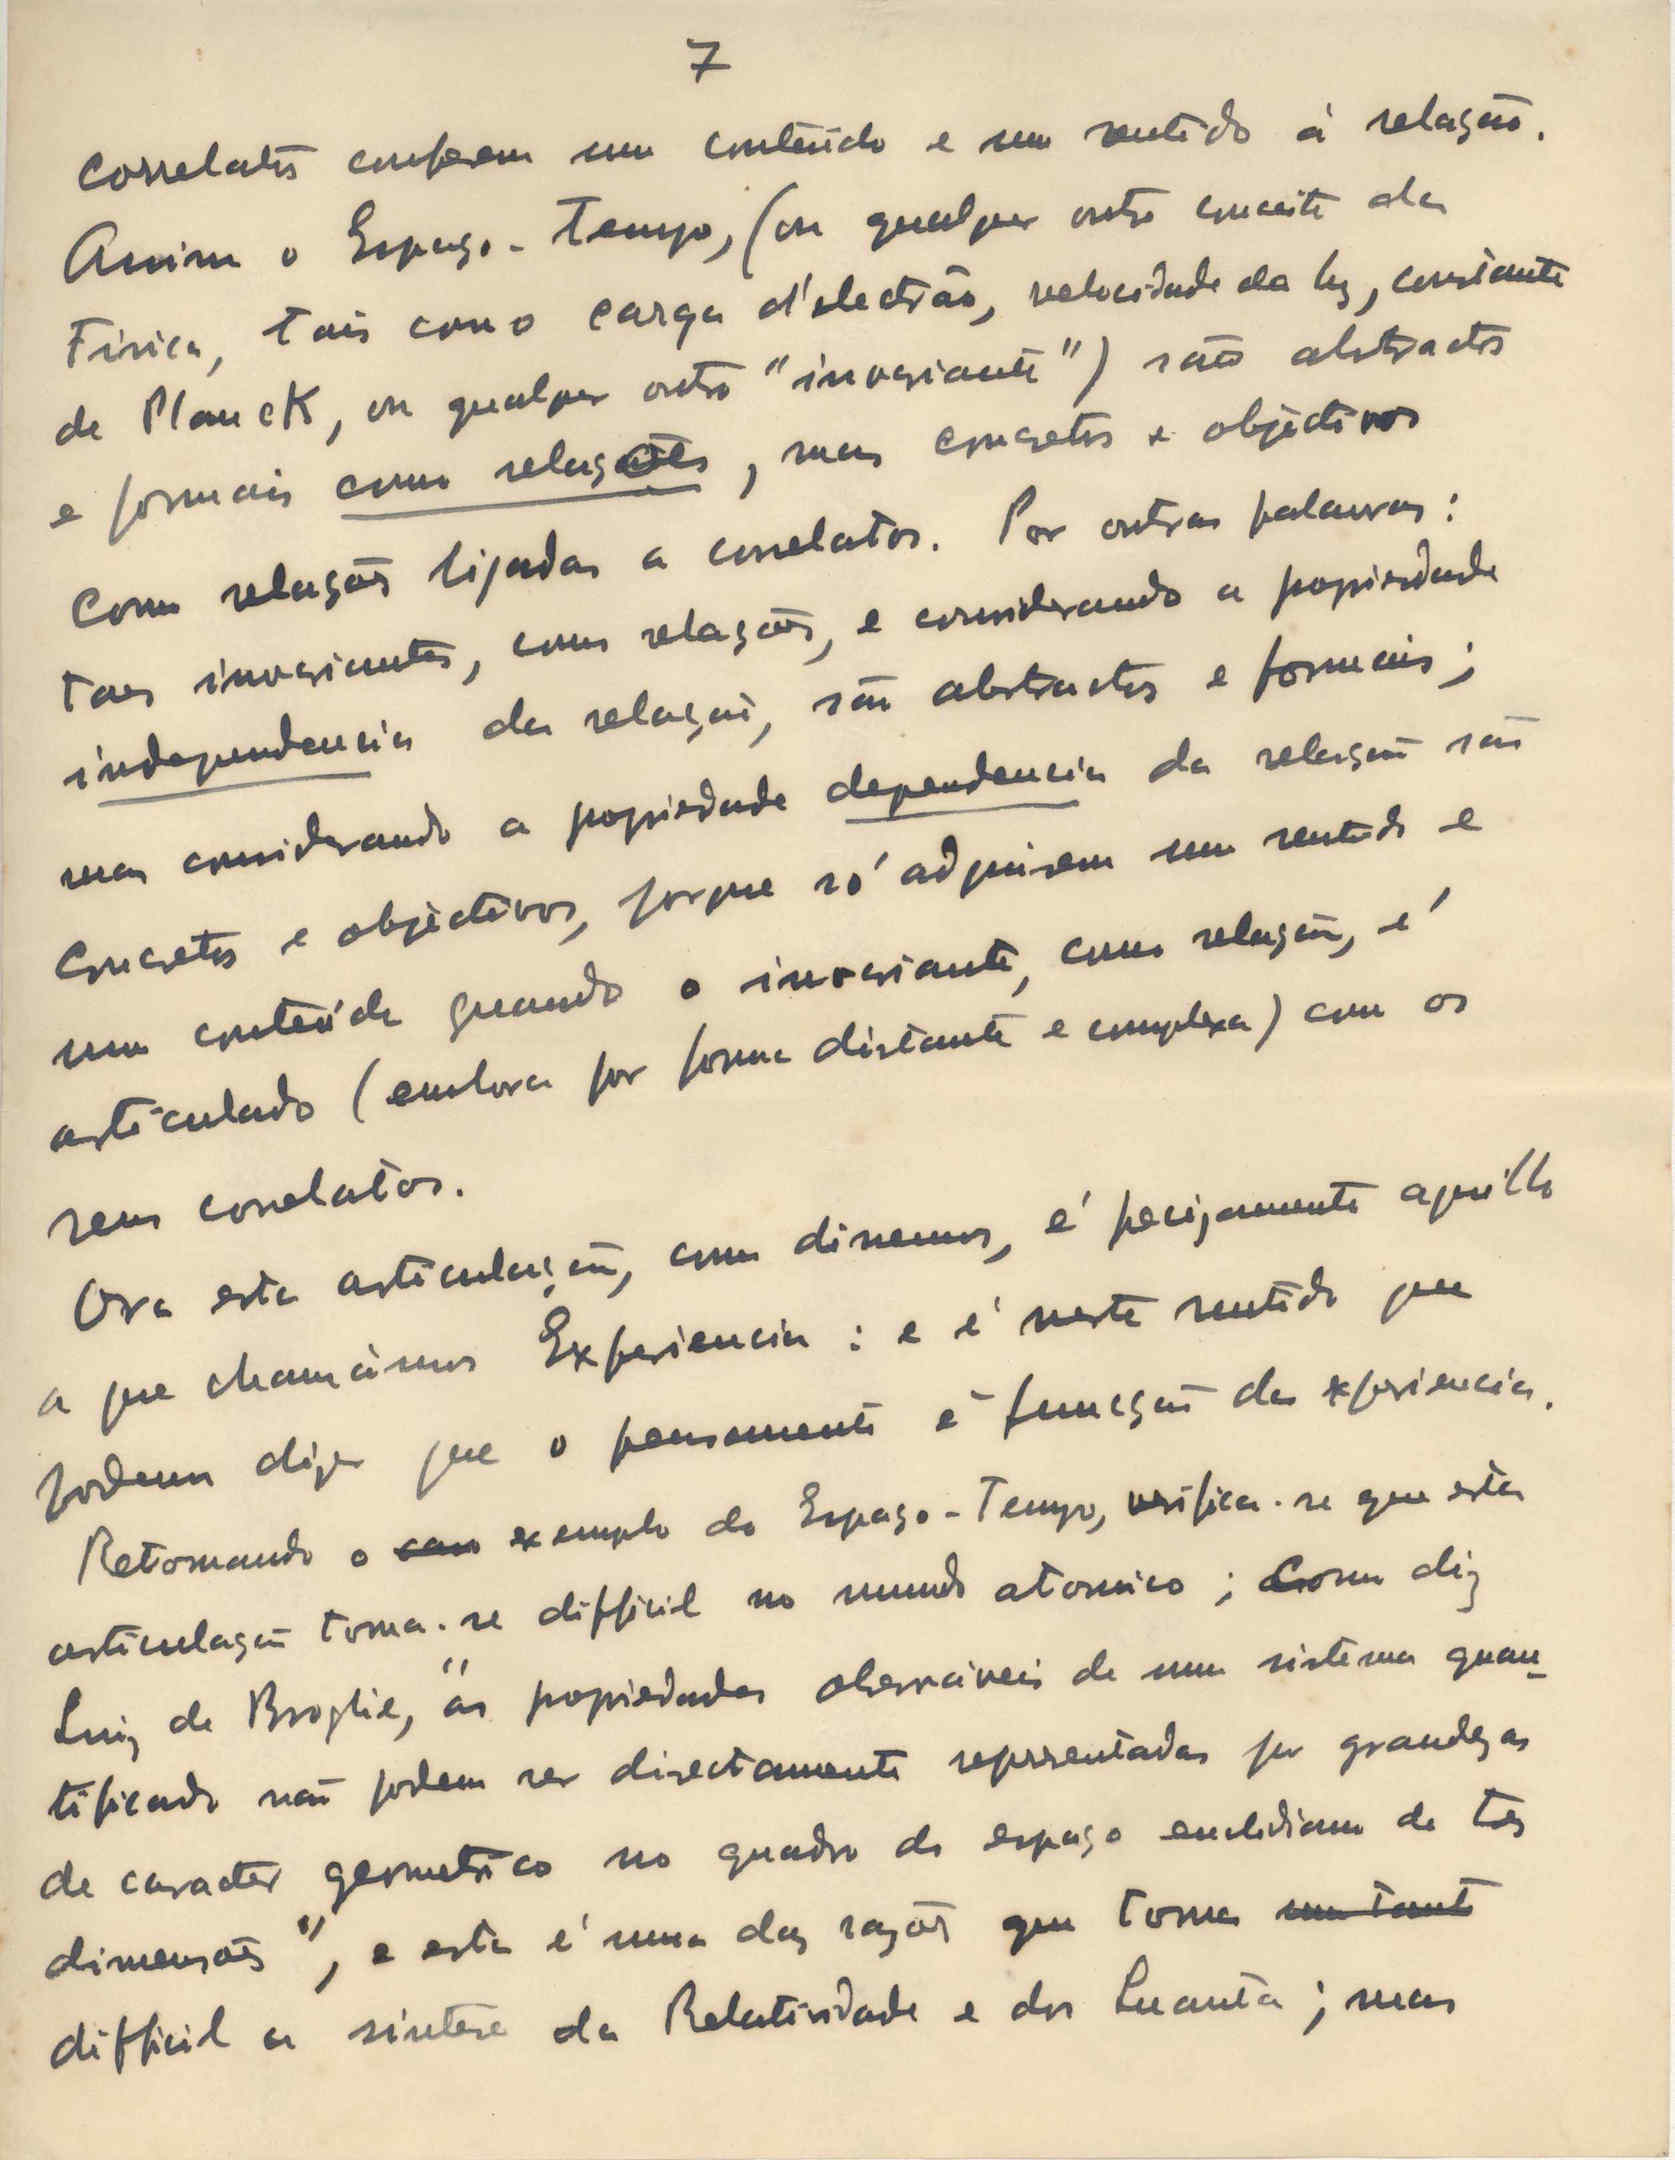 7
correlatos conferem um conteúdo e um sentido à relação.
Assim o Espaço-Tempo, (ou qualquer outro conceito da
Fisica, tais como carga d'electrão, velocidade da luz, constante
de Planck, ou qualquer outro "invariante") são abstractos
e formais como relações, mas concretos e objèctivos
como relações ligadas a correlatos. Por outras palavras:
taes invariantes, como relações, e considerando a propriedade
independencia da relação, são abstractos e formais;
mas considerando a propriedade dependencia da relação são
concretos e objèctivos, porque só adquirem um sentido e
um conteúdo quando o invariante, como relação, é
articulado (embora por forma distante e complexa) com os
seus correlatos.
Ora esta articulação, como dissemos, é precizamente aquillo
a que chamàmos Experiencia: e é neste sentido que
podemos dizer que o pensamento é funcção da experiencia.
Retomando o caso exemplo do Espaço-Tempo, verifica-se que esta
articulação torna-se difficil no mundo atomico; como diz
Luiz de Broglie, "as propriedades observáveis de um sistema quan-
tificado não podem ser directamente representadas por grandezas
de caracter geometrico no quadro do espaço euclidiano de tres
dimensões", e esta é uma das razões que torna um tanto
difficil a sintese da Relatividade e dos Quanta; mas